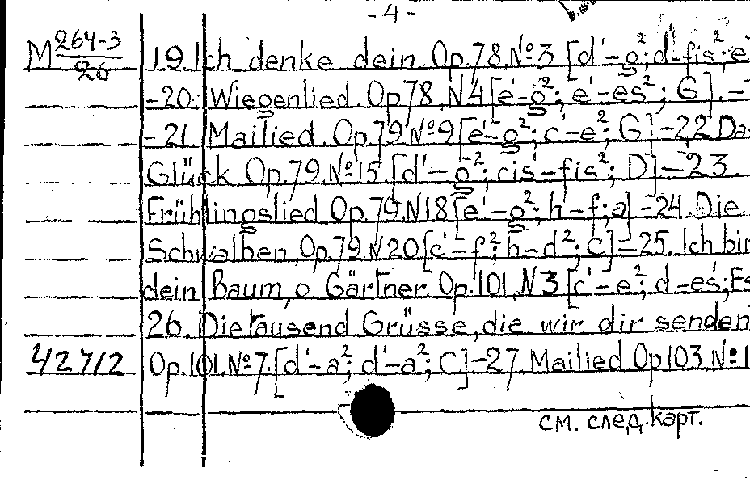 -4-
М 264-3/26 19 Ich denke dein. Op.78, №3 [d'-g²; d'-fis²; e
-20. Wiegenlied. Op.78, №4 [e'-g²; e'-es²; G].-
-21. Mailied. Op.79 №9 [e'-g²; c'-e²; G]-22 Da
Glück. Op.79. №15 [d'-g²; cis'-fis²; D]-23
Frühlingslied Op.79. №18 [e'-g²; h-f; a]-24. Die
Schwalben. Op.79 №20 [c'-f²; h-d²; C]-25. Ich bin
dein Baum, o Gärtner. Op.101, №3 [c'-e²; d-es'; Es
26. Die Tausend Grüsse, die wir dir senden
42712 Op.101. №7. [d'-a²; d'-a²; C]-27. Mailied Op103. №1
см. след. карт.